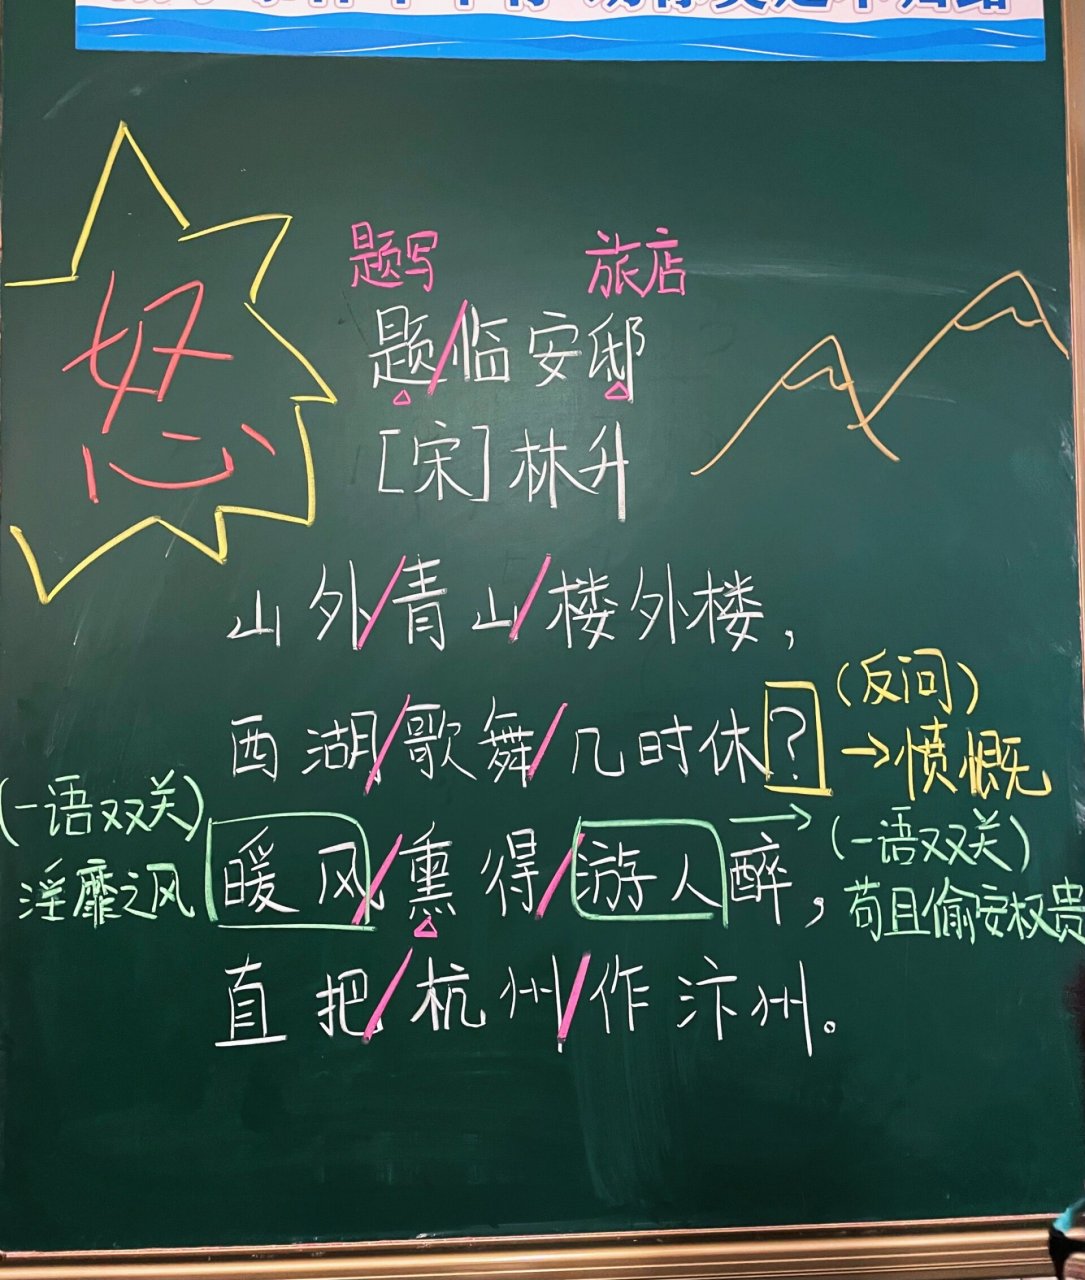 怒
题写 旅店
题/临安邸
[宋]林升
山外/青山/楼外楼，
(反问)
西湖/歌舞/几时休？
→愤慨
(一语双关)
淫靡之风
暖风/熏得/游人醉，
(一语双关)
苟且偷安权贵
直把/杭州/作汴州。